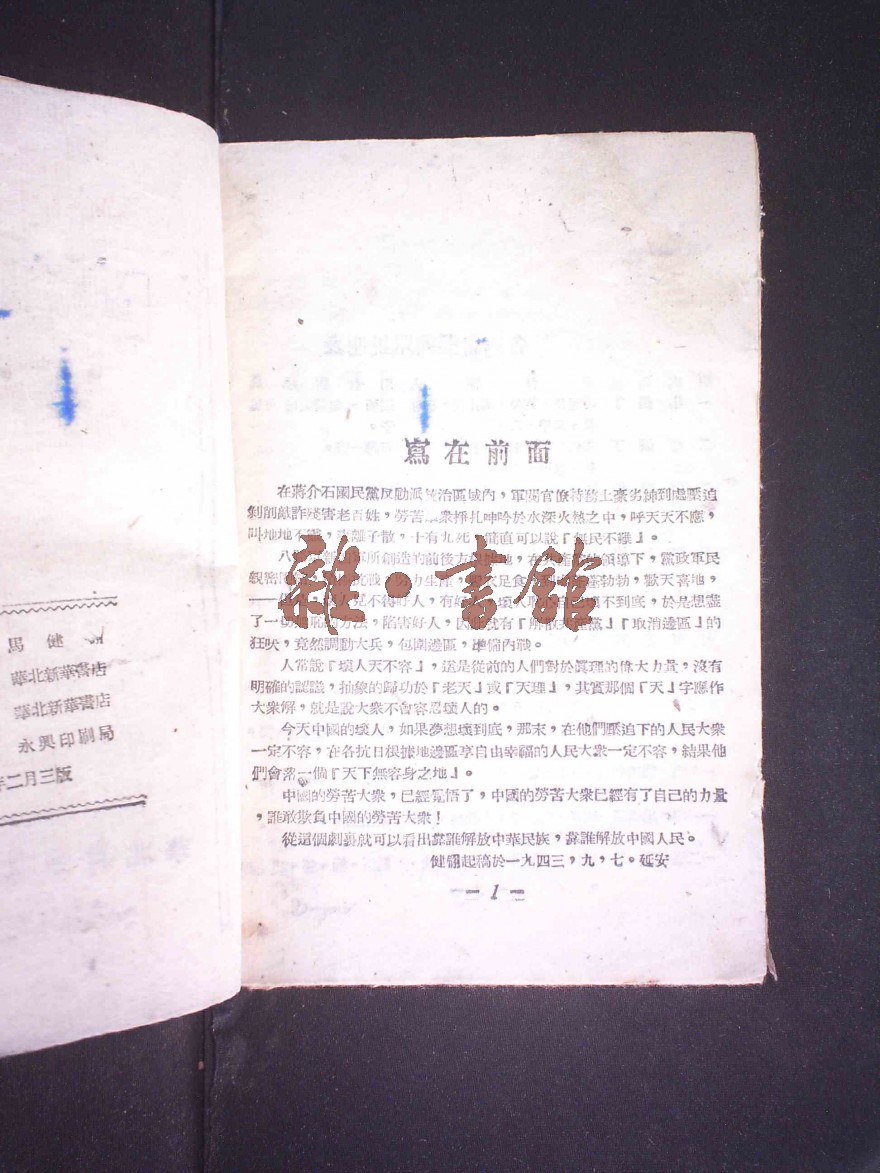 馬健
華北新華書店
華北新華書店
永興印刷局
年二月三版
寫在前面
在蔣介石國民黨反動派統治區域內，軍閥官僚特務土豪劣紳到處壓迫
剝削敲詐殘害老百姓，勞苦羣衆掙扎呻吟於水深火熱之中，呼天天不應，
叫地地不，離子散，十有九死，簡直可以說『無民不難』。
八所創造的前後方根據地，在共產黨的領導下，黨政軍民
親密，努力生產，足食，蓬勃勃，歡天喜地，
——見不得好人，有好不到底，於是想盡
了一切的方法，陷害好人，因有『解散共產黨』『取消邊區』的
狂吠，竟然調動大兵，包圍邊區，準備內戰。
人常說『壞人天不容』，這是從前的人們對於眞理的偉大力量，沒有
明確的認識，抽象的歸功於『老天』或『天理』，其實那個『天』字應作
大衆解，就是說大衆不會容忍壞人的。
今天中國的壞人，如果夢想壞到底，那末，在他們壓迫下的人民大衆
一定不容，在各抗日根據地邊區享自由幸福的人民大衆一定不容，結果他
們會落一個『天下無容身之地』。
中國的勞苦大衆，已經覺悟了，中國的勞苦大衆已經有了自己的力量
，誰敢欺負中國的勞苦大衆！
從這個劇裏就可以看出靠誰解放中華民族，靠誰解放中國人民。
健翎起稿於一九四三，九，七。延安
— 1 —
雜·書館